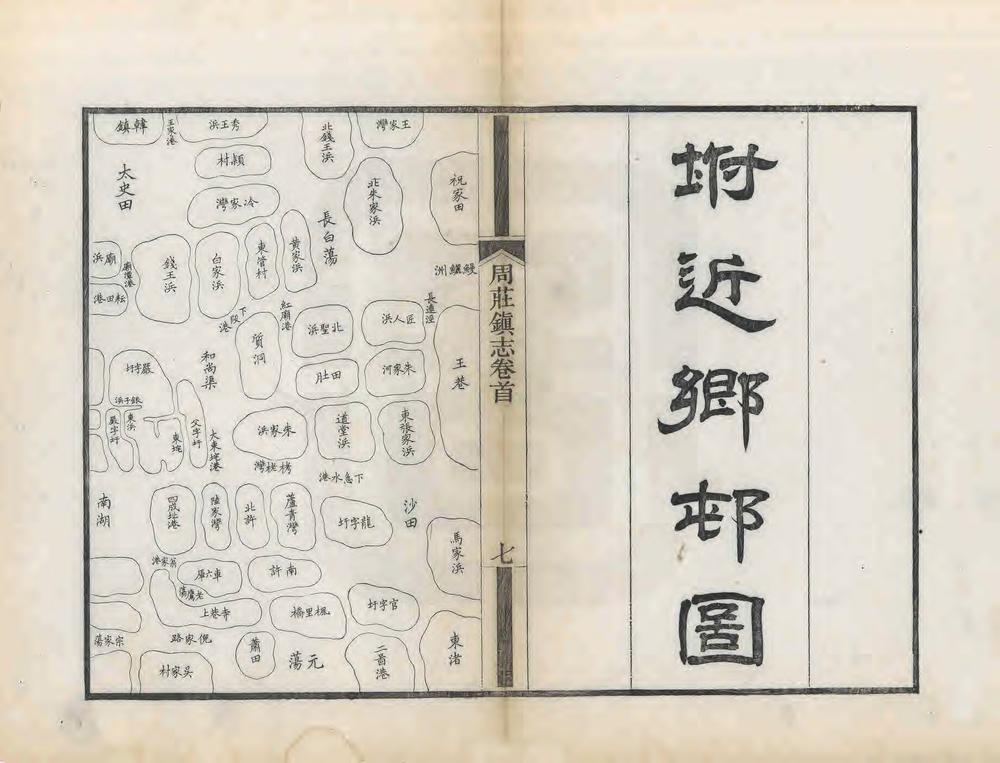 坿近鄉邨圖
周莊鎮志卷首
七
王家灣
北錢王浜
秀王浜
王家港
韓鎮
祝家田
北朱家浜
長白蕩
穎村
冷家灣
太史田
鰻鱺洲
黃家浜
東管村
白家浜
錢王浜
廟涇港
廟浜
耘田港
長連涇
王巷
匠人浜
北聖浜
紅廟港
下段港
質洞
和尚渠
朱家河
田肚
嚴字圩
東張家浜
道堂浜
朱家浜
大東垞港
父字圩
東垞
銀子浜
東浜
嚴字圩
栲栳灣
下急水港
沙田
龍字圩
蘆青灣
北許
陸家灣
四成址港
南湖
馬家浜
南許
車六厙
翁家港
老鷹蕩
官字圩
楓里橋
寺巷上
東渚
二啚港
元蕩
蕭田
倪家路
宗家蕩
吳家村